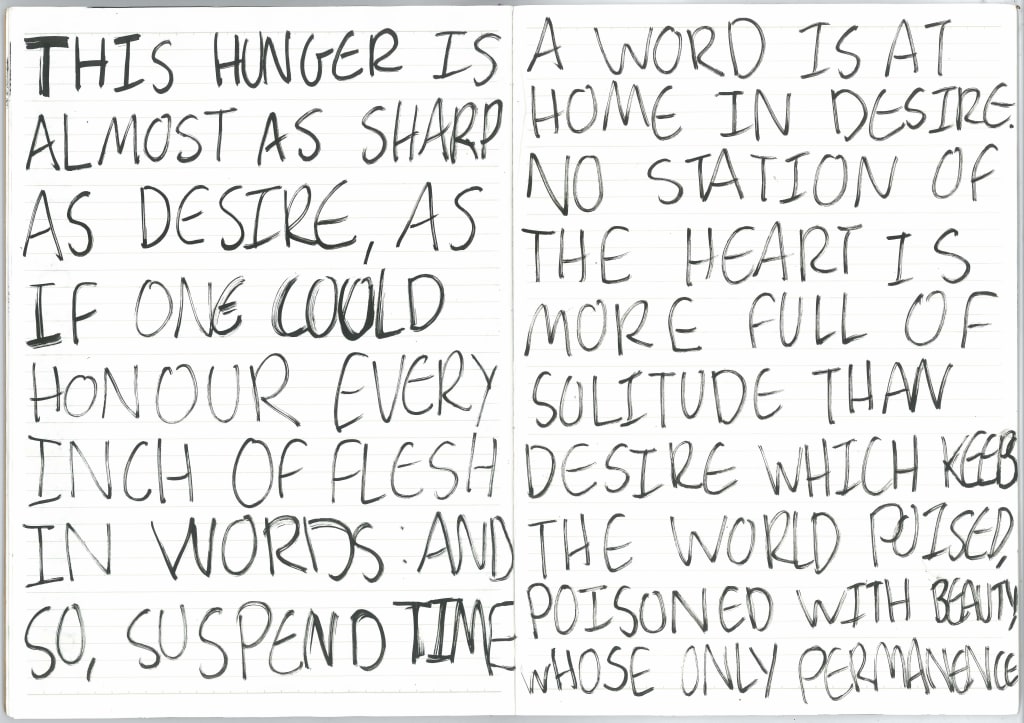 THIS HUNGER IS
ALMOST AS SHARP
AS DESIRE, AS
IF ONE COULD
HONOUR EVERY
INCH OF FLESH
IN WORDS: AND
SO, SUSPEND TIME
A WORD IS AT
HOME IN DESIRE.
NO STATION OF
THE HEART IS
MORE FULL OF
SOLITUDE THAN
DESIRE WHICH KEEPS
THE WORLD POISED,
POISONED WITH BEAUTY,
WHOSE ONLY PERMANENCE